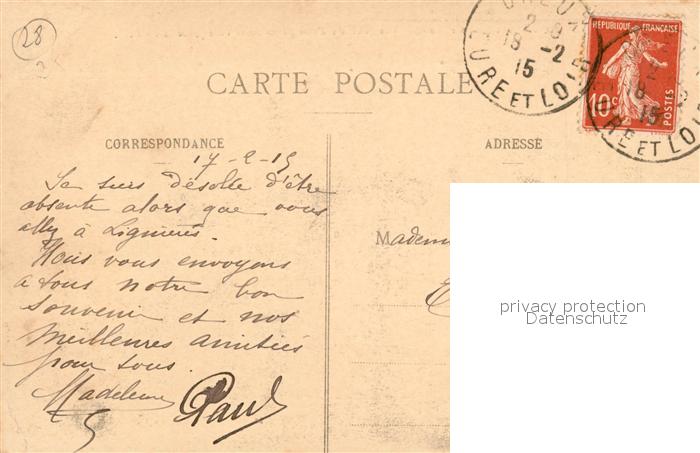 28
CARTE POSTALE
DREUX
2 18
18 -2
15
EURE ET LOIR
REPUBLIQUE FRANÇAISE
10c
POSTES
18
15
EURE ET LOIR
CORRESPONDANCE
ADRESSE
17-2-15
Je suis désolée d'être
absente alors que vous
allez à Lignières.
Nous vous envoyons
a tous notre bon
souvenir et nos
meilleures amitiés
pour tous.
Madeleine Paul
Madem
privacy protection
Datenschutz